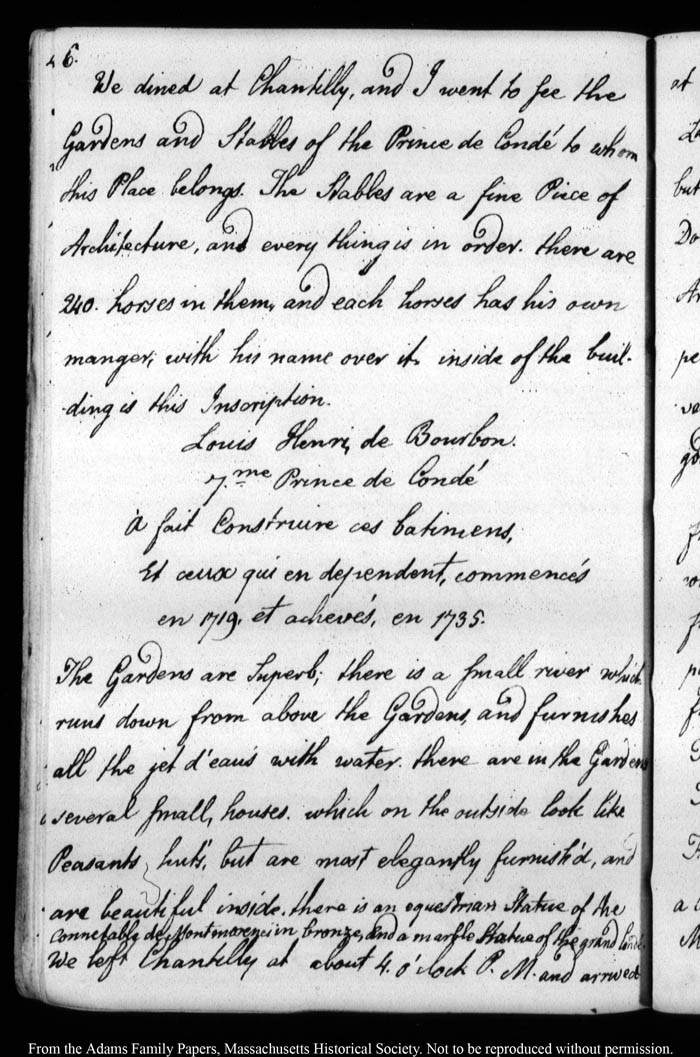 26.
We dined at Chantilly, and I went to see the
Gardens and Stables of the Prince de Condé to whom
this Place belongs. The Stables are a fine Piece of
Architecture, and every thing is in order. there are
240. horses in them, and each horses has his own
manger, with his name over it. inside of the buil-
ding is this Inscription.
Louis Henri, de Bourbon.
7.me Prince de Condé
à fait Construire ces batimens,
Et ceux qui en dependent, commencés
en 1719, et achevés, en 1735.
The Gardens are Superb; there is a small river which
runs down from above the Gardens, and furnishes
all the jet d'eau's with water. there are in the Gardens
several small, houses. which on the outside look like
Peasants huts, but are most elegantly furnish'd, and
are beautiful inside. there is an equestrian Statue of the
Connetable de Montmorenci in bronze, and a marble Statue of the grand Condé.
We left Chantilly at about 4. o'clock P. M. and arrived
at
but
Do
pe
a
From the Adams Family Papers, Massachusetts Historical Society. Not to be reproduced without permission.